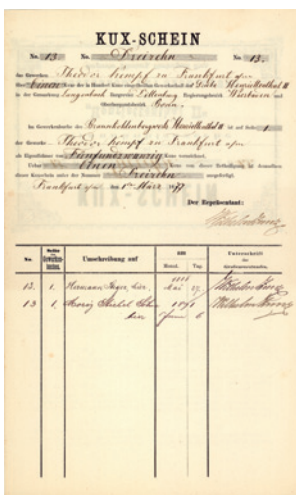 KUX-SCHEIN
No. 13. No. Dreizehn No. 13.
des Gewerken Theodor Kempf zu Frankfurt a/m
über Einen Kux der in Hundert Kuxe eingetheilten Gewerkschaft der Grube Henriettenthal II
in der Gemarkung Langenbach Bergrevier Regierungsbezirk Wiesbaden und
Oberbergamtsbezirk Bonn.
Im Gewerkenbuche des Braunkohlenbergwerks Henriettenthal II ist auf Seite 1
der Gewerke Theodor Kempf zu Frankfurt a/m
als Eigenthümer von Fünfundzwanzig Kuxe vermerkt.
Ueber Einen Kux von dieser Betheiligung ist demselben
dieser Kuxschein unter der Nummer Dreizehn ausgefertigt.
Frankfurt a/m den 1ten März 1877
Der Repräsentant:
No. Seite des Gewerkenbuches. Umschreibung auf Monat. Tag. Unterschrift des
13. 1. Hermann Mai 27.
13 1. Moritz 1891
Juni 6